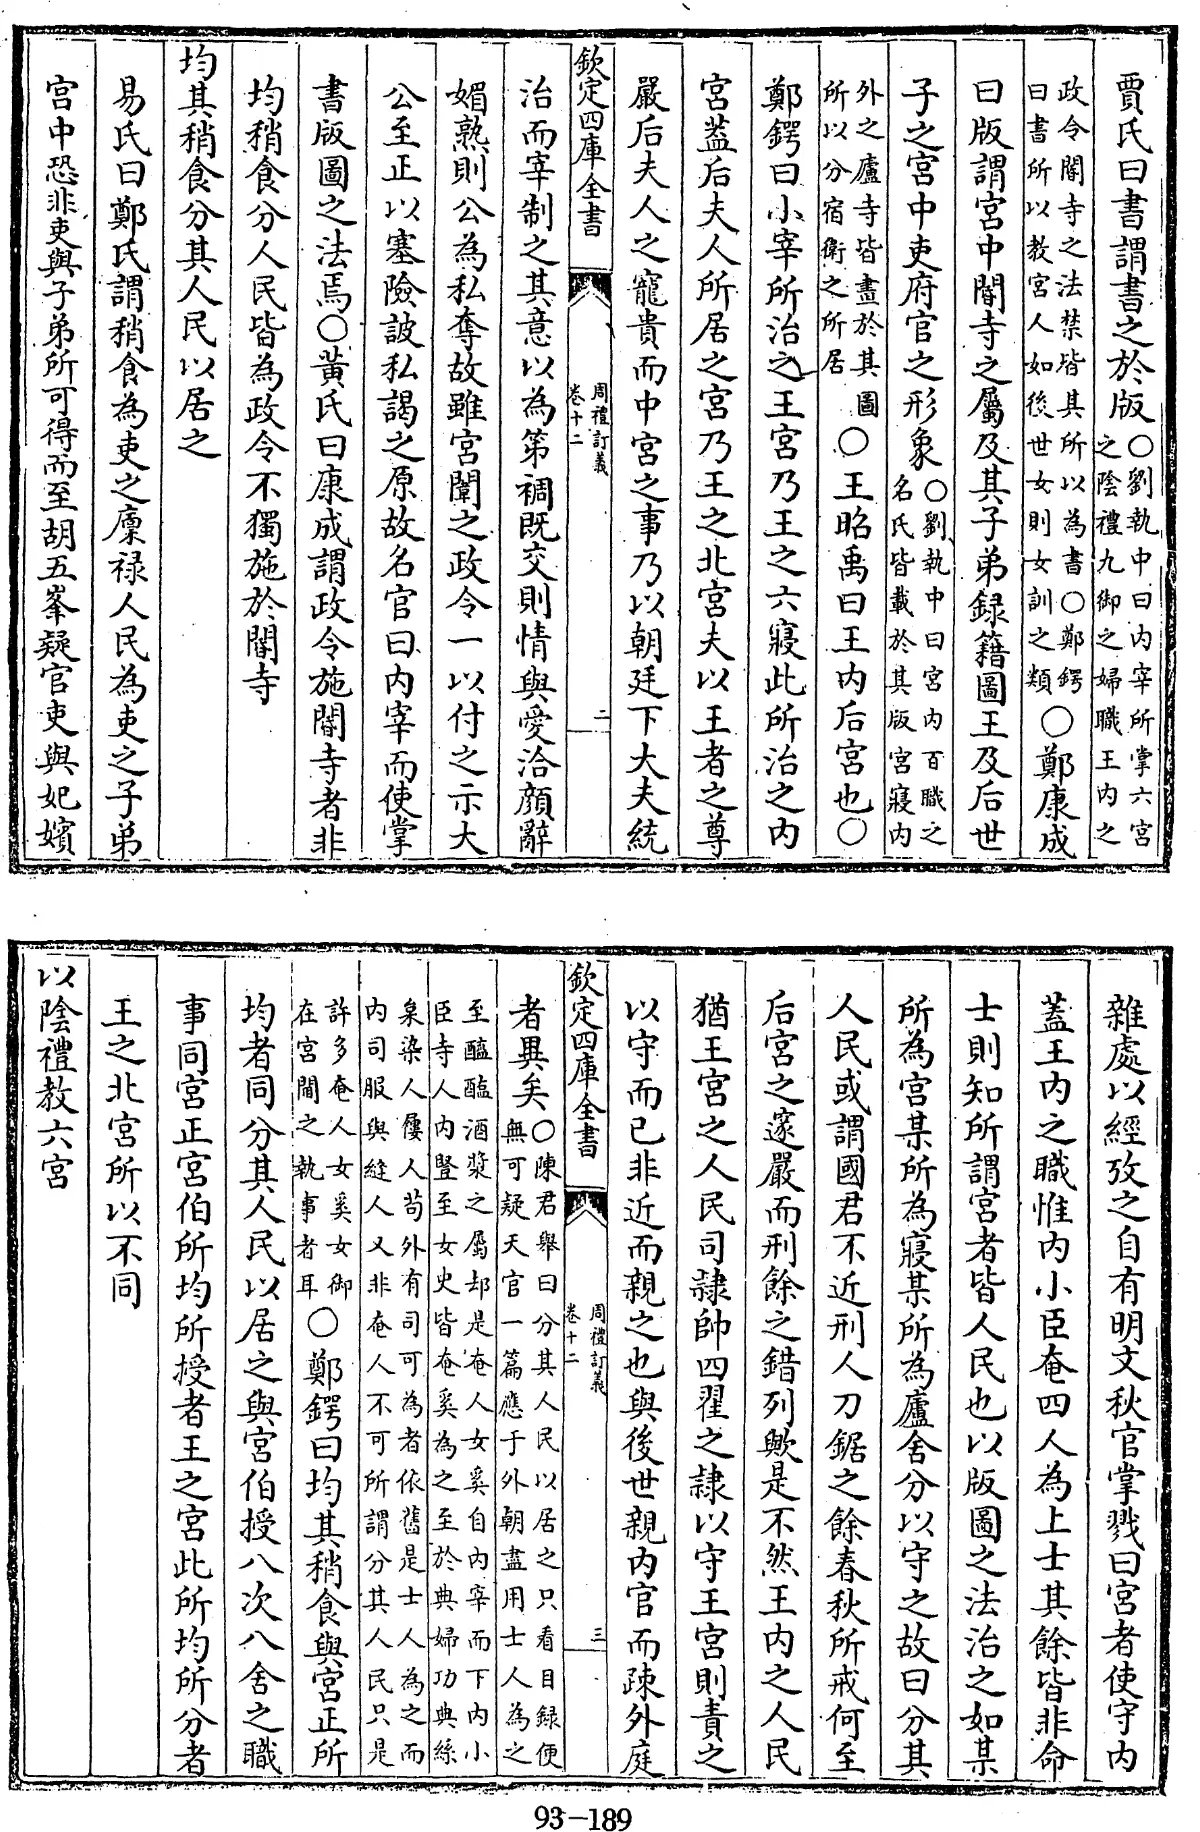 賈氏曰書謂書之於版○劉執中曰内宰所掌六宮之陰禮九御之婦職王内之
政令閽寺之法禁皆其所以為書○鄭鍔曰書所以教宮人如後世女則女訓之類○鄭康成
曰版謂宮中閽寺之屬及其子弟録籍圖王及后世
子之宮中吏府官之形象○劉執中曰宮内百職之名氏皆載於其版宮寢内
外之廬寺皆盡於其圖所以分宿衛之所居○王昭禹曰王内后宮也○
鄭鍔曰小宰所治之王宮乃王之六寢此所治之内
宮葢后夫人所居之宮乃王之北宮夫以王者之尊
嚴后夫人之寵貴而中宮之事乃以朝廷下大夫統
欽定四庫全書
周禮訂義
卷十二
二
治而宰制之其意以為第裯既交則情與愛洽顔辭
媚熟則公為私奪故雖宮闈之政令一以付之示大
公至正以塞險詖私謁之原故名官曰内宰而使掌
書版圖之法焉○黄氏曰康成謂政令施閽寺者非
均稍食分人民皆為政令不獨施於閽寺
均其稍食分其人民以居之
易氏曰鄭氏謂稍食為吏之廩禄人民為吏之子弟
宮中恐非吏與子弟所可得而至胡五峯疑官吏與妃嬪
雜處以經攷之自有明文秋官掌戮曰宮者使守内
葢王内之職惟内小臣奄四人為上士其餘皆非命
士則知所謂宮者皆人民也以版圖之法治之如某
所為宮某所為寢某所為廬舍分以守之故曰分其
人民或謂國君不近刑人刀鋸之餘春秋所戒何至
后宮之邃嚴而刑餘之錯列歟是不然王内之人民
猶王宮之人民司隷帥四翟之隷以守王宮則責之
以守而已非近而親之也與後世親内官而疎外庭
欽定四庫全書
周禮訂義
卷十二
三
者異矣○陳君舉曰分其人民以居之只看目録便無可疑天官一篇應于外朝盡用士人為之
至醯醢酒漿之屬却是奄人女奚自内宰而下内小臣寺人内豎至女史皆奄奚為之至於典婦功典絲
枲染人屨人苟外有司可為者依舊是士人為之而内司服與縫人又非奄人不可所謂分其人民只是
許多奄人女奚女御在宮間之執事者耳○鄭鍔曰均其稍食與宮正所
均者同分其人民以居之與宮伯授八次八舍之職
事同宮正宮伯所均所授者王之宮此所均所分者
王之北宮所以不同
以陰禮教六宮
93-189